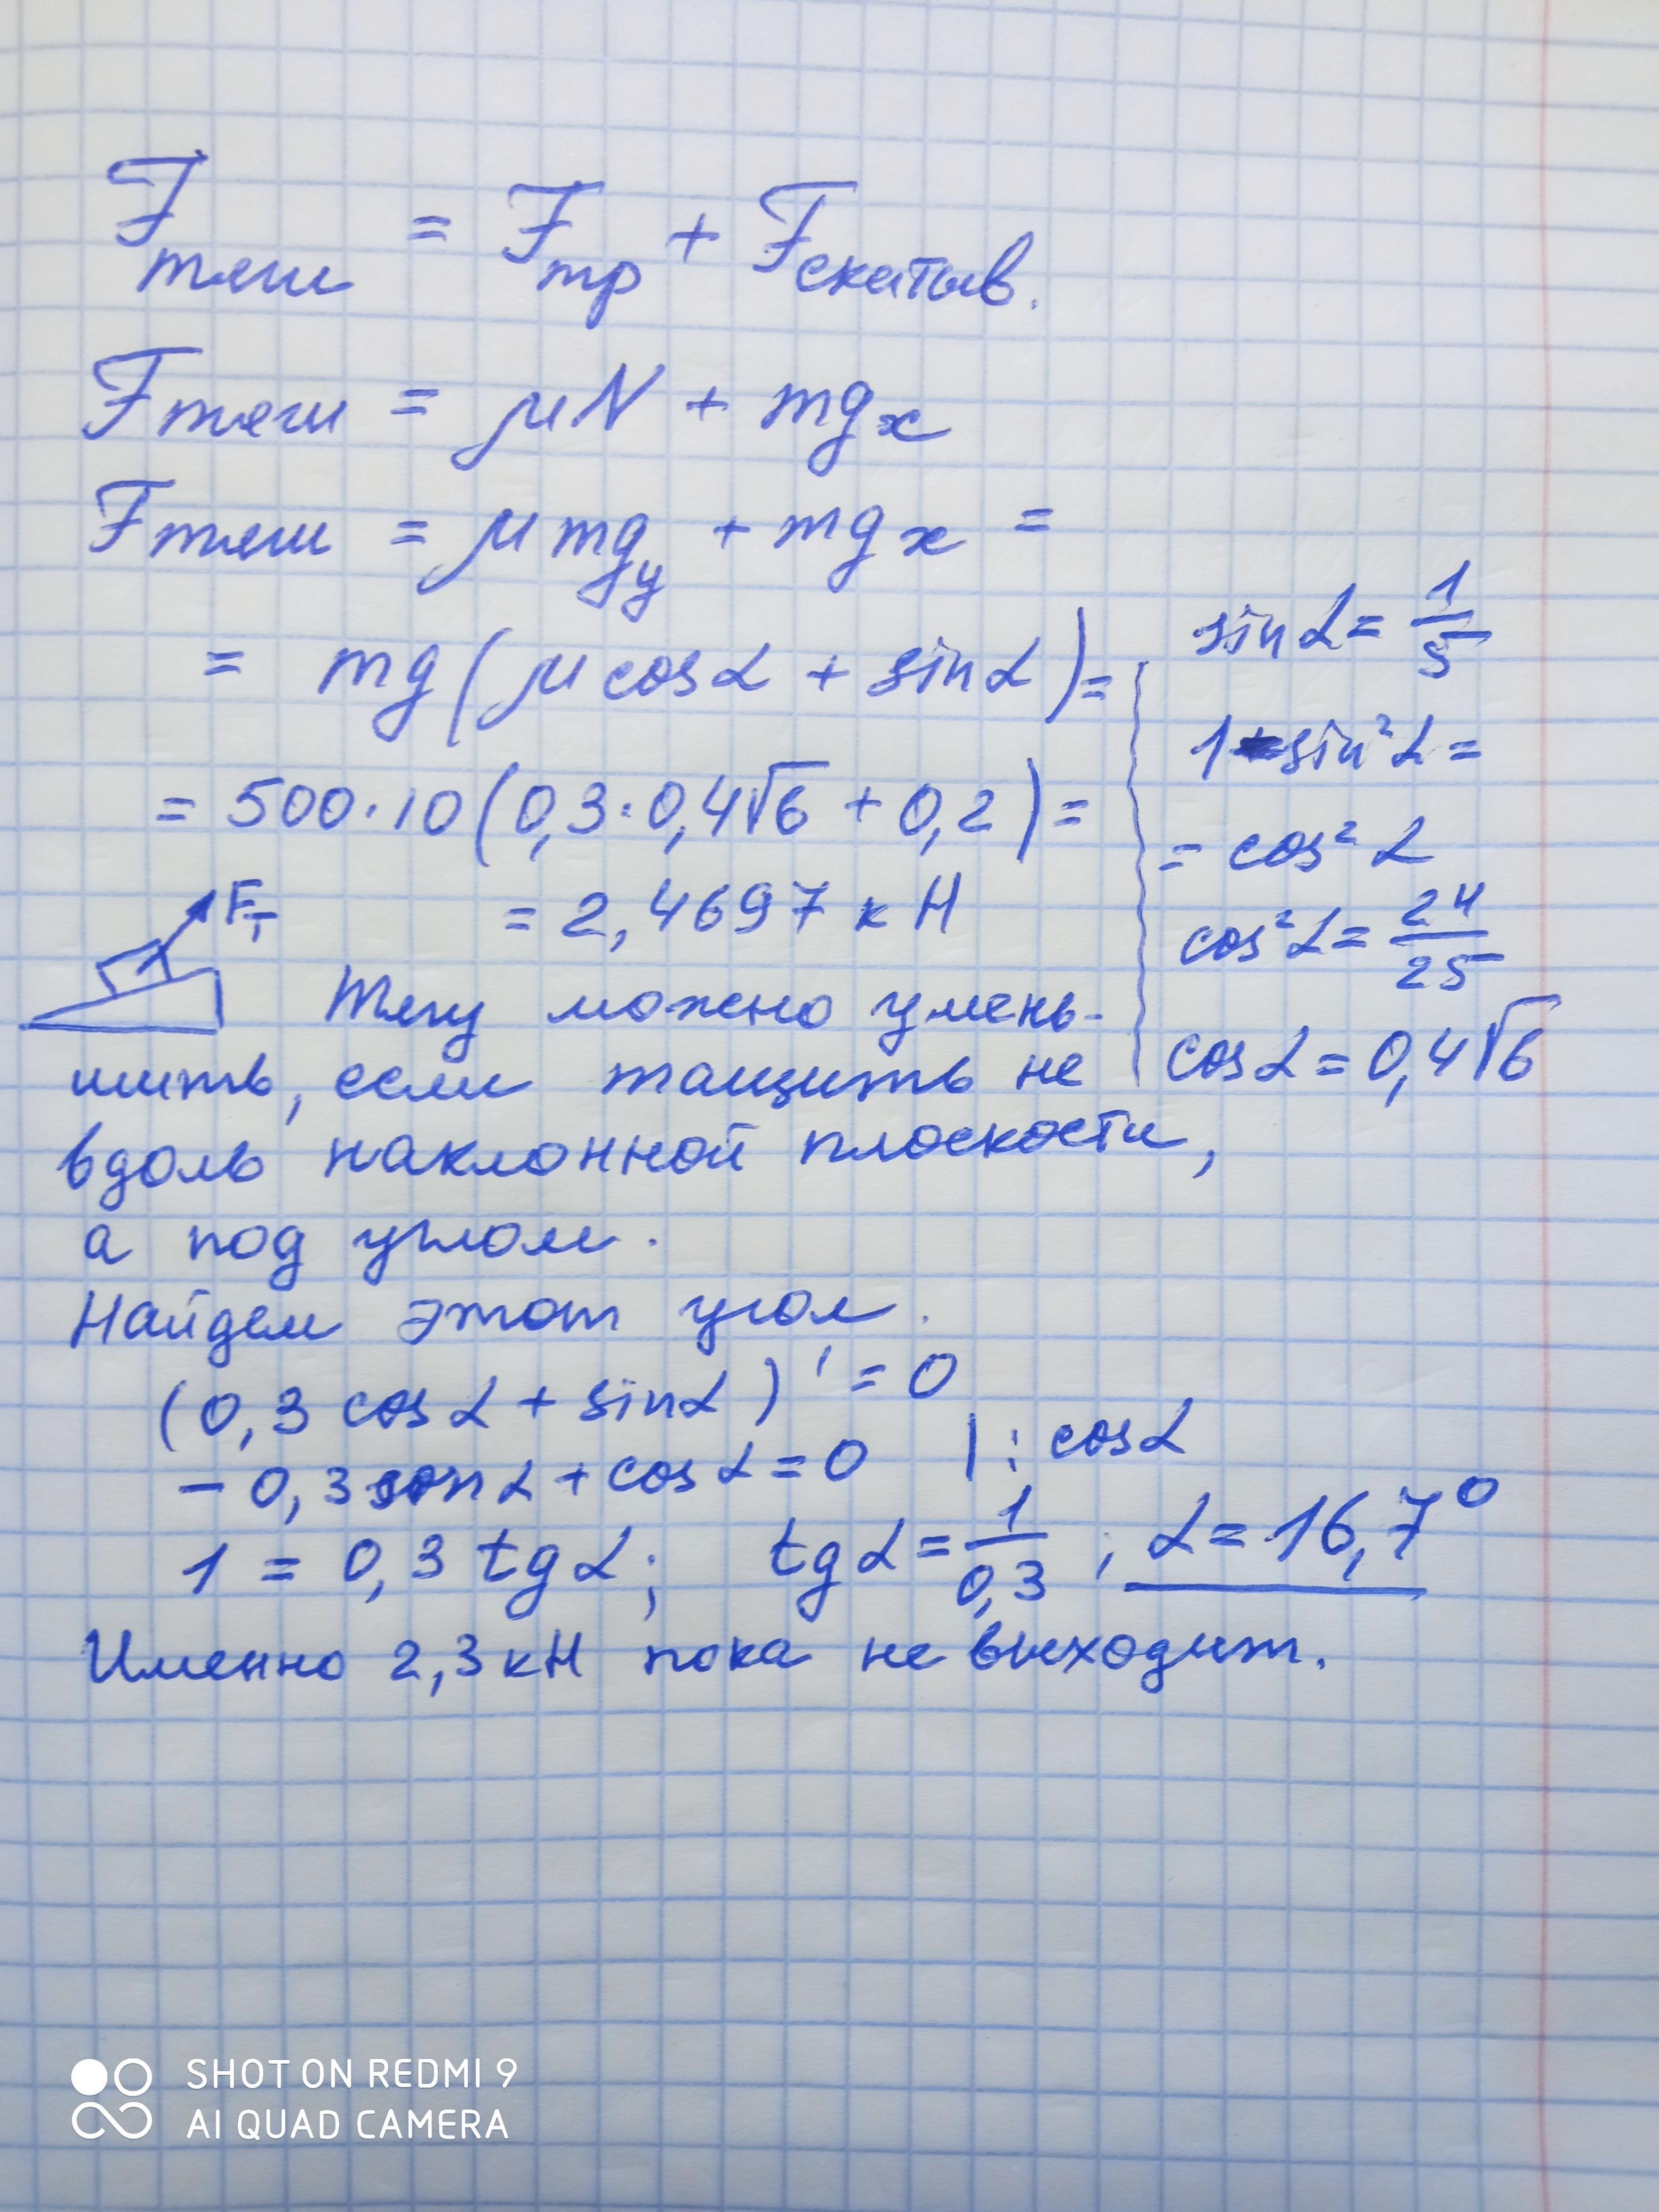 Fтяги = Fтр + Fскатыв.
Fтяги = μN + mgx
Fтяги = μmgy + mgx =
= mg(μcosα + sinα) =
= 500·10(0,3·0,4√6 + 0,2) =
= 2,4697 кН
sinα = 1/5
1 - sin²α =
= cos²α
cos²α = 24/25
cosα = 0,4√6
Fт
Тягу можно умень-
шить, если тащить не
вдоль наклонной плоскости,
а под углом.
Найдем этот угол.
(0,3 cosα + sinα)' = 0
- 0,3 sinα + cosα = 0 | : cosα
1 = 0,3 tgα; tgα = 1/0,3; α = 16,7°
Именно 2,3 кН пока не выходит.
SHOT ON REDMI 9
AI QUAD CAMERA